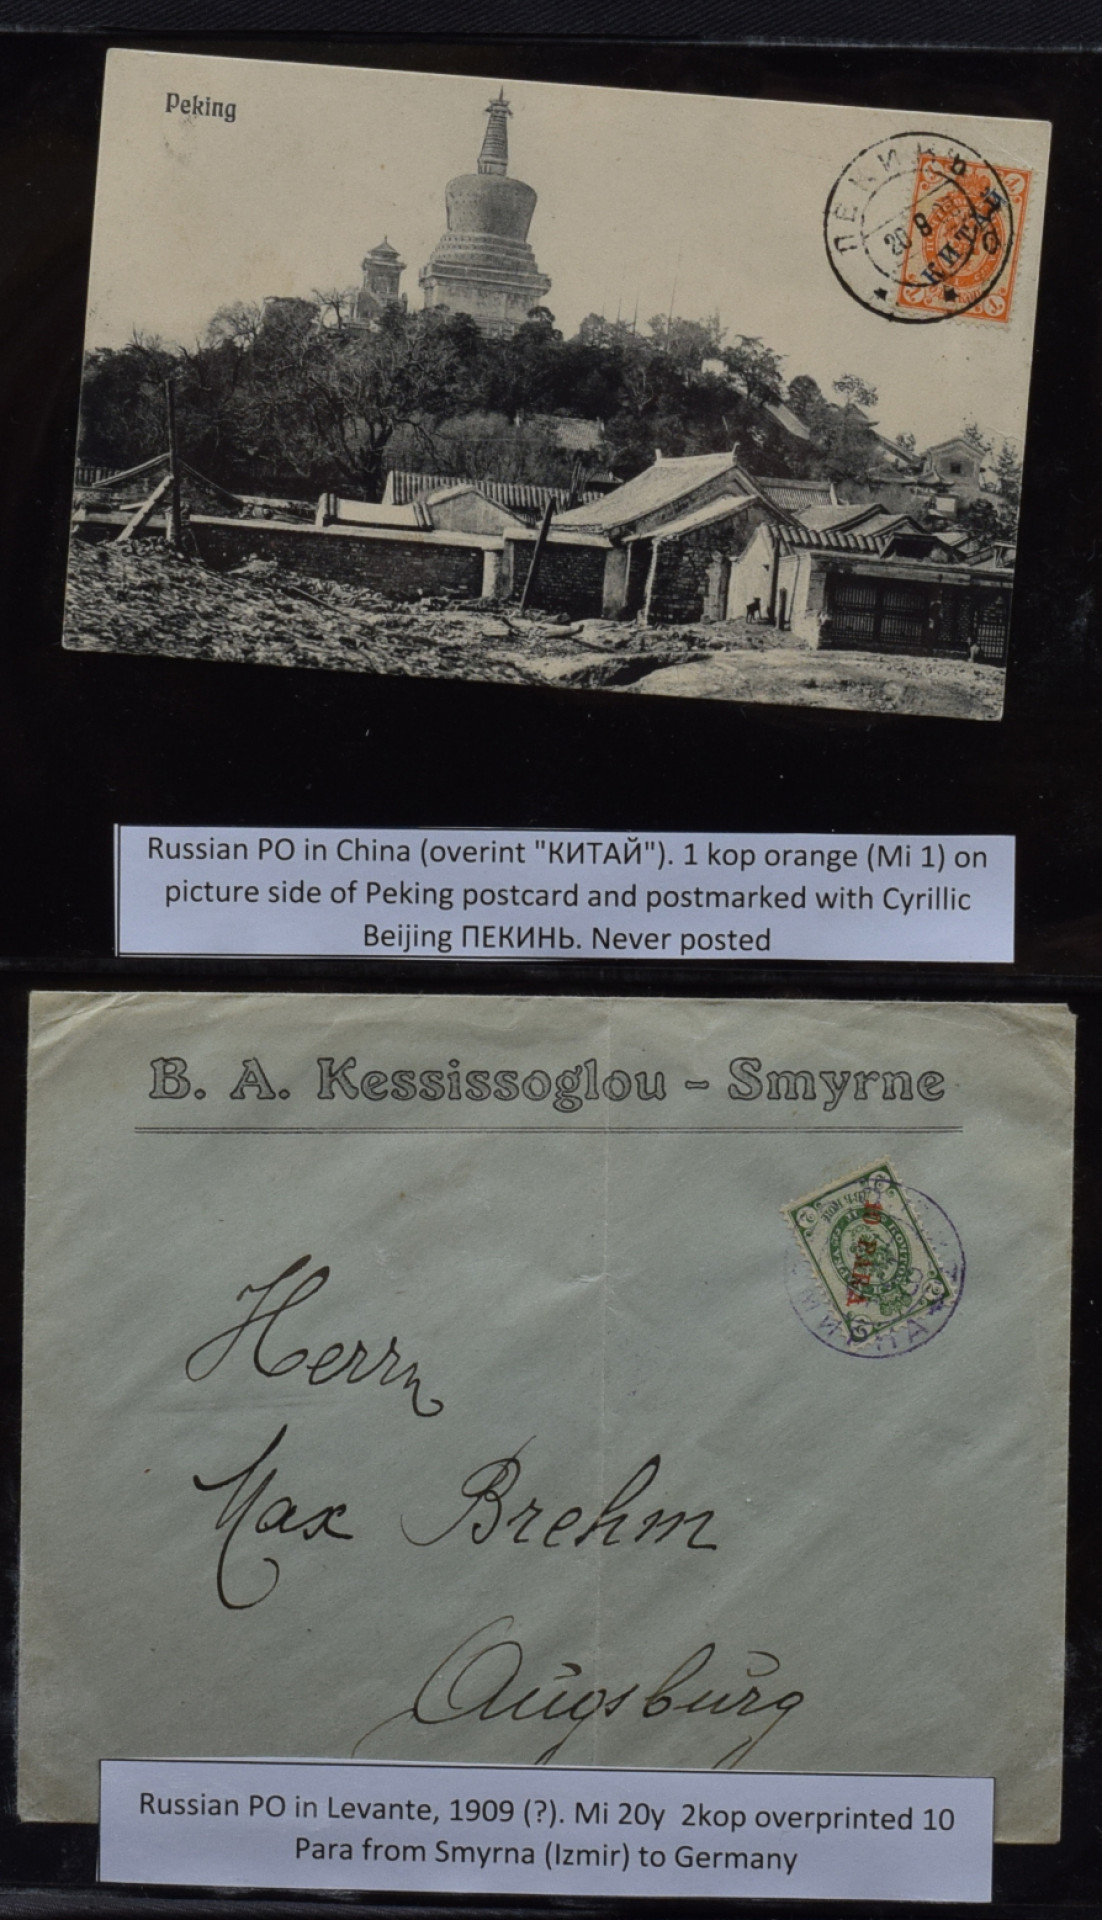 Peking
ПЕКИНЬ
20 8
КИТАЙ
Russian PO in China (overint "КИТАЙ"). 1 kop orange (Mi 1) on
picture side of Peking postcard and postmarked with Cyrillic
Beijing ПЕКИНЬ. Never posted
B. A. Kessissoglou - Smyrne
10 PARA
Herrn
Max Brehm
Augsburg
Russian PO in Levante, 1909 (?). Mi 20y 2kop overprinted 10
Para from Smyrna (Izmir) to Germany